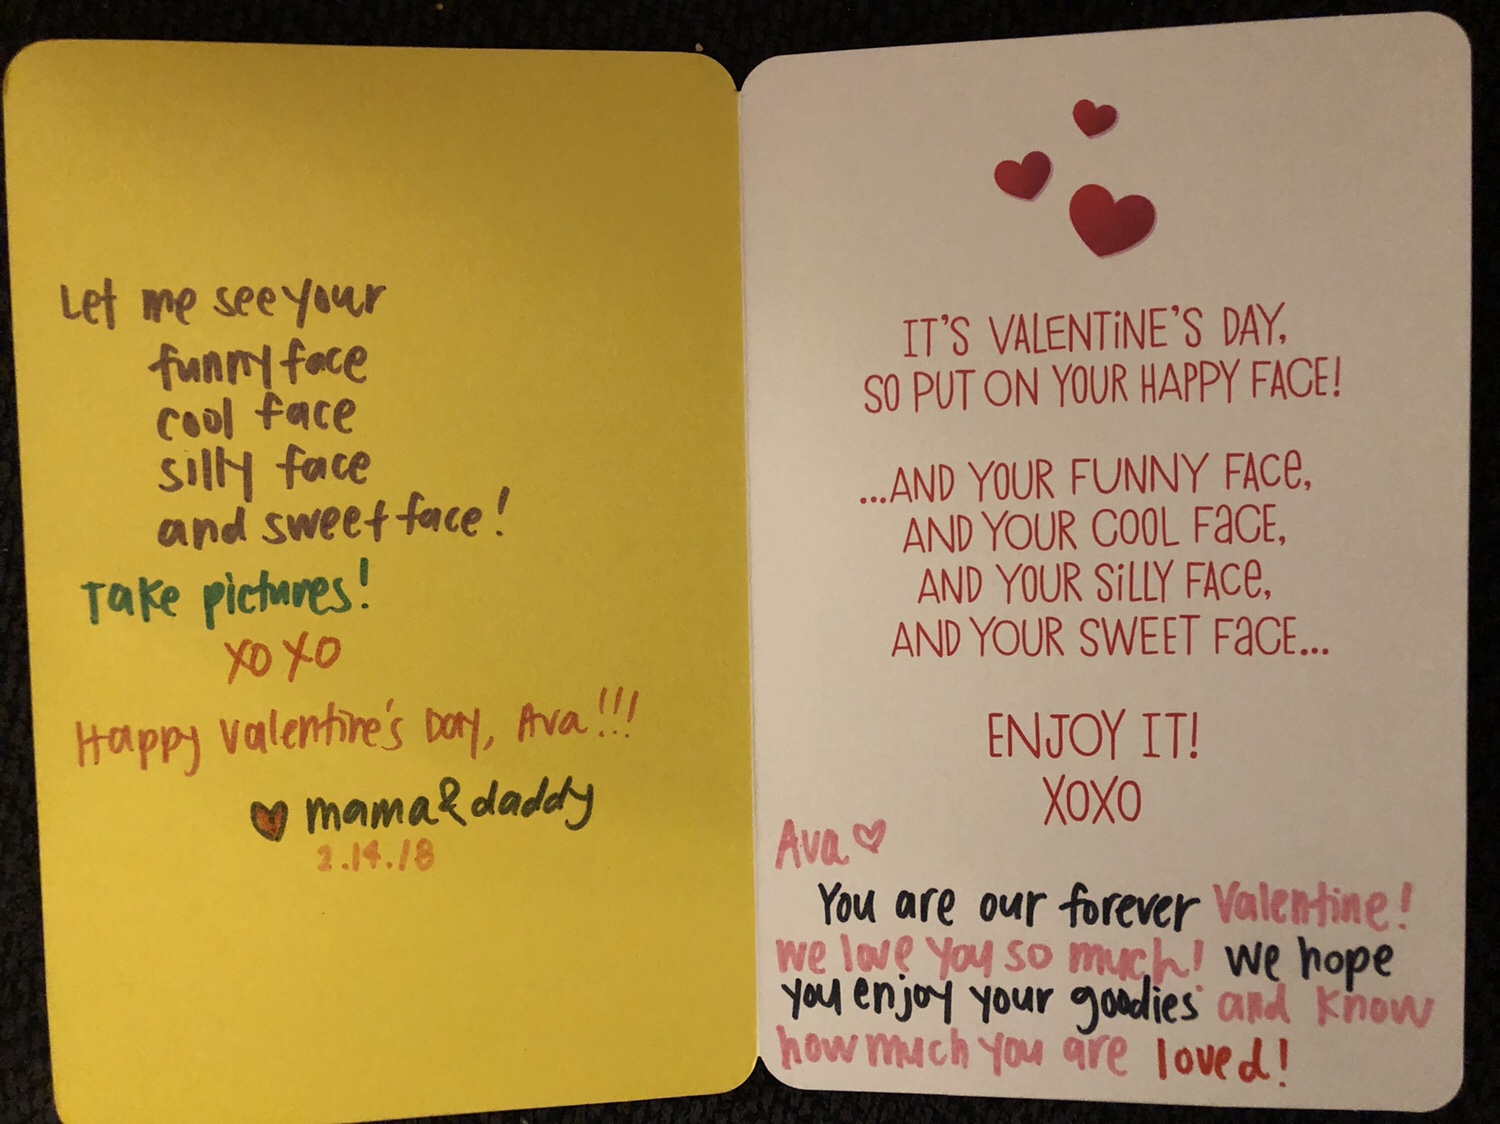 Let me see your
funny face
cool face
silly face
and sweet face!
Take pictures!
XOXO
Happy Valentine's Day, Ava!!!
mama & daddy
2.14.18
IT'S VALENTiNE'S DAY,
SO PUT ON YOUR HAPPY FACE!
...AND YOUR FUNNY FACe,
AND YOUR COOL FaCE,
AND YOUR SiLLY FACe,
AND YOUR SWEET FaCE...
ENJOY IT!
XOXO
Ava
You are our forever Valentine!
we love you so much! We hope
you enjoy your goodies and know
how much you are loved!